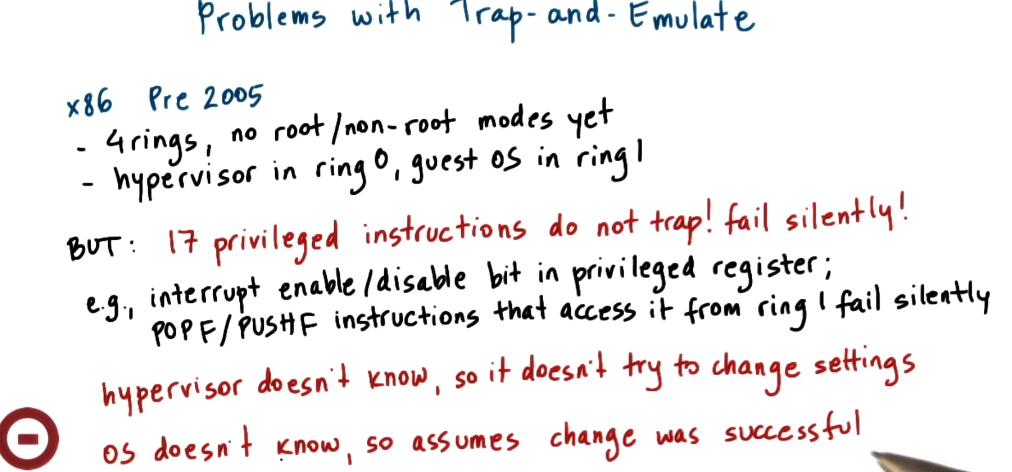 Problems with Trap-and-Emulate
x86 Pre 2005
- 4 rings, no root/non-root modes yet
- hypervisor in ring 0, guest OS in ring 1
BUT: 17 privileged instructions do not trap! fail silently!
e.g., interrupt enable/disable bit in privileged register;
POPF/PUSHF instructions that access it from ring 1 fail silently
hypervisor doesn't know, so it doesn't try to change settings
OS doesn't know, so assumes change was successful